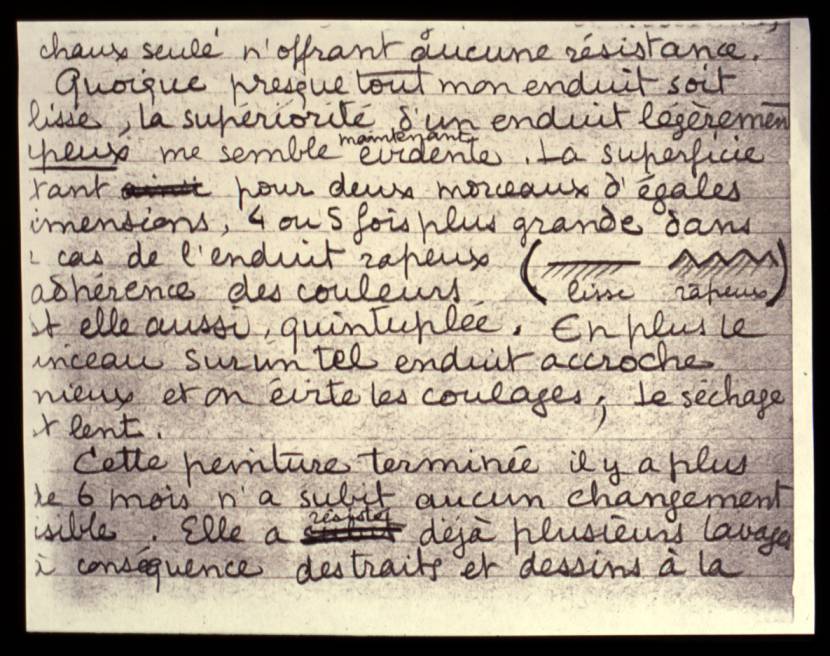 chaux seule n'offrant aucune résistance.
Quoique presque tout mon enduit soit
lisse, la supériorité d'un enduit légèremen
maintenant
peux me semble évidente. La superficie
tant pour deux morceaux d'égales
imensions, 4 ou 5 fois plus grande dans
cas de l'enduit rapeux
adhérence des couleurs ( lisse rapeux )
st elle aussi, quintuplée. En plus le
inceau sur un tel enduit accroche
mieux et on évite les coulages; le séchage
t lent.
Cette peinture terminée il y a plus
de 6 mois n'a subit aucun changement
isible. Elle a déjà plusieurs lavages
à conséquence des traits et dessins à la